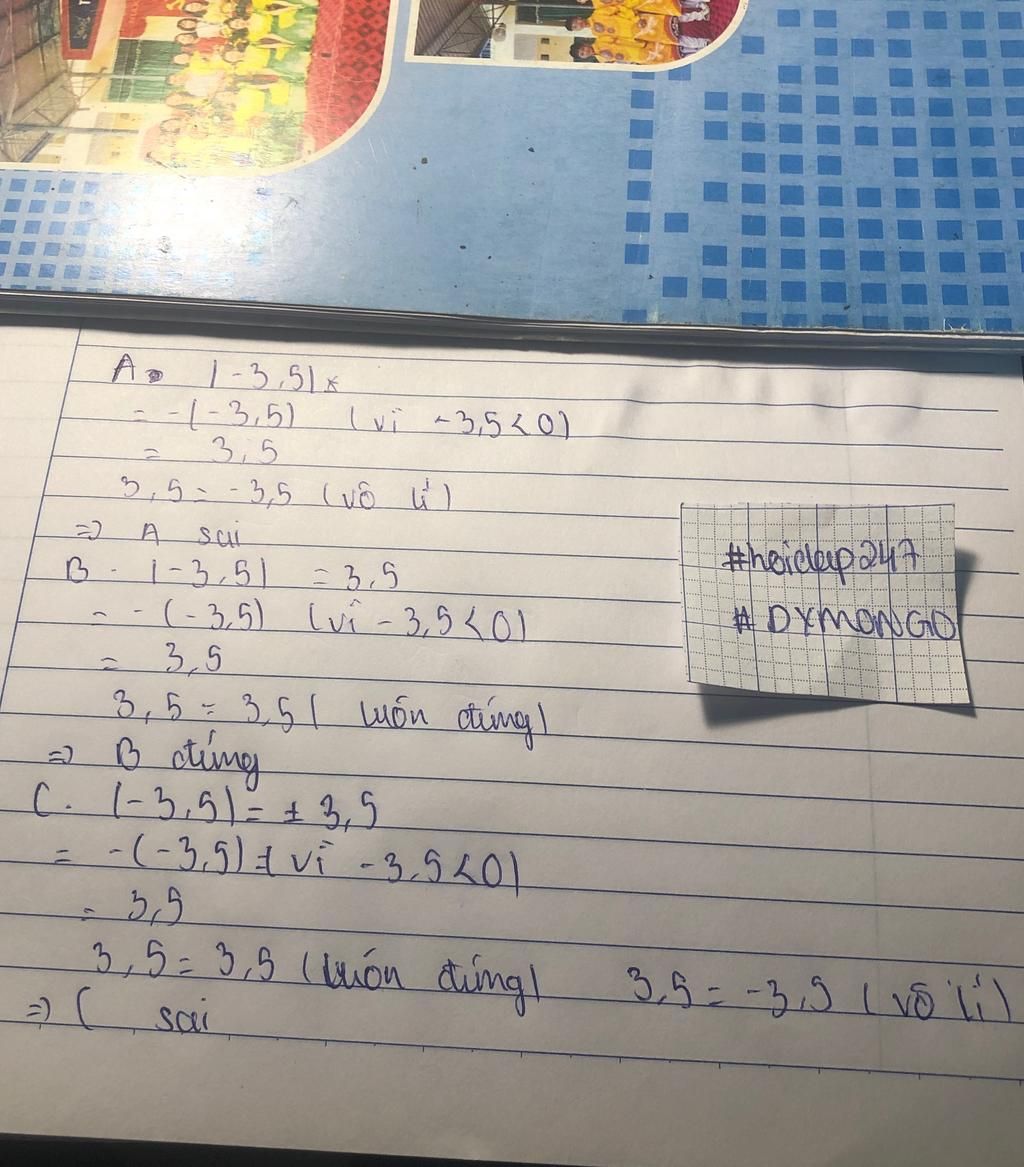 A. |-3,5|
= -(-3,5) (vì -3,5<0)
= 3,5
3,5 = -3,5 (vô lí)
=> A sai
B. |-3,5| = 3,5
= -(-3,5) (vì -3,5<0)
= 3,5
3,5 = 3,5 (luôn đúng)
=> B đúng
C. |-3,5| = ± 3,5
= -(-3,5) (vì -3,5<0)
= 3,5
3,5 = 3,5 (luôn đúng) 3,5 = -3,5 (vô lí)
=> C sai
#hoidap247
# DYMONGO